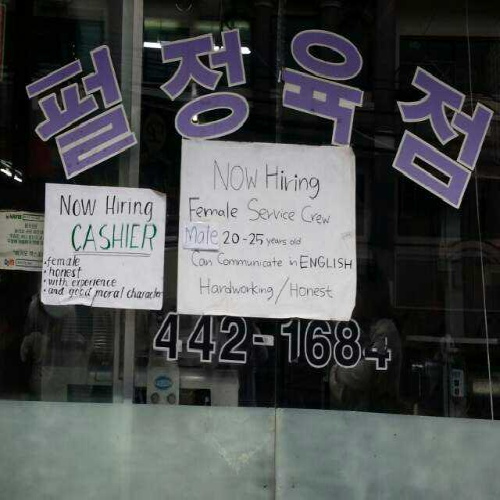 필정육점
NOW Hiring
CASHIER
• female
• honest
• with experience
• and good moral character
NOW Hiring
Female Service Crew
Male 20-25 years old
Can Communicate in ENGLISH
Hardworking / Honest
442-1684